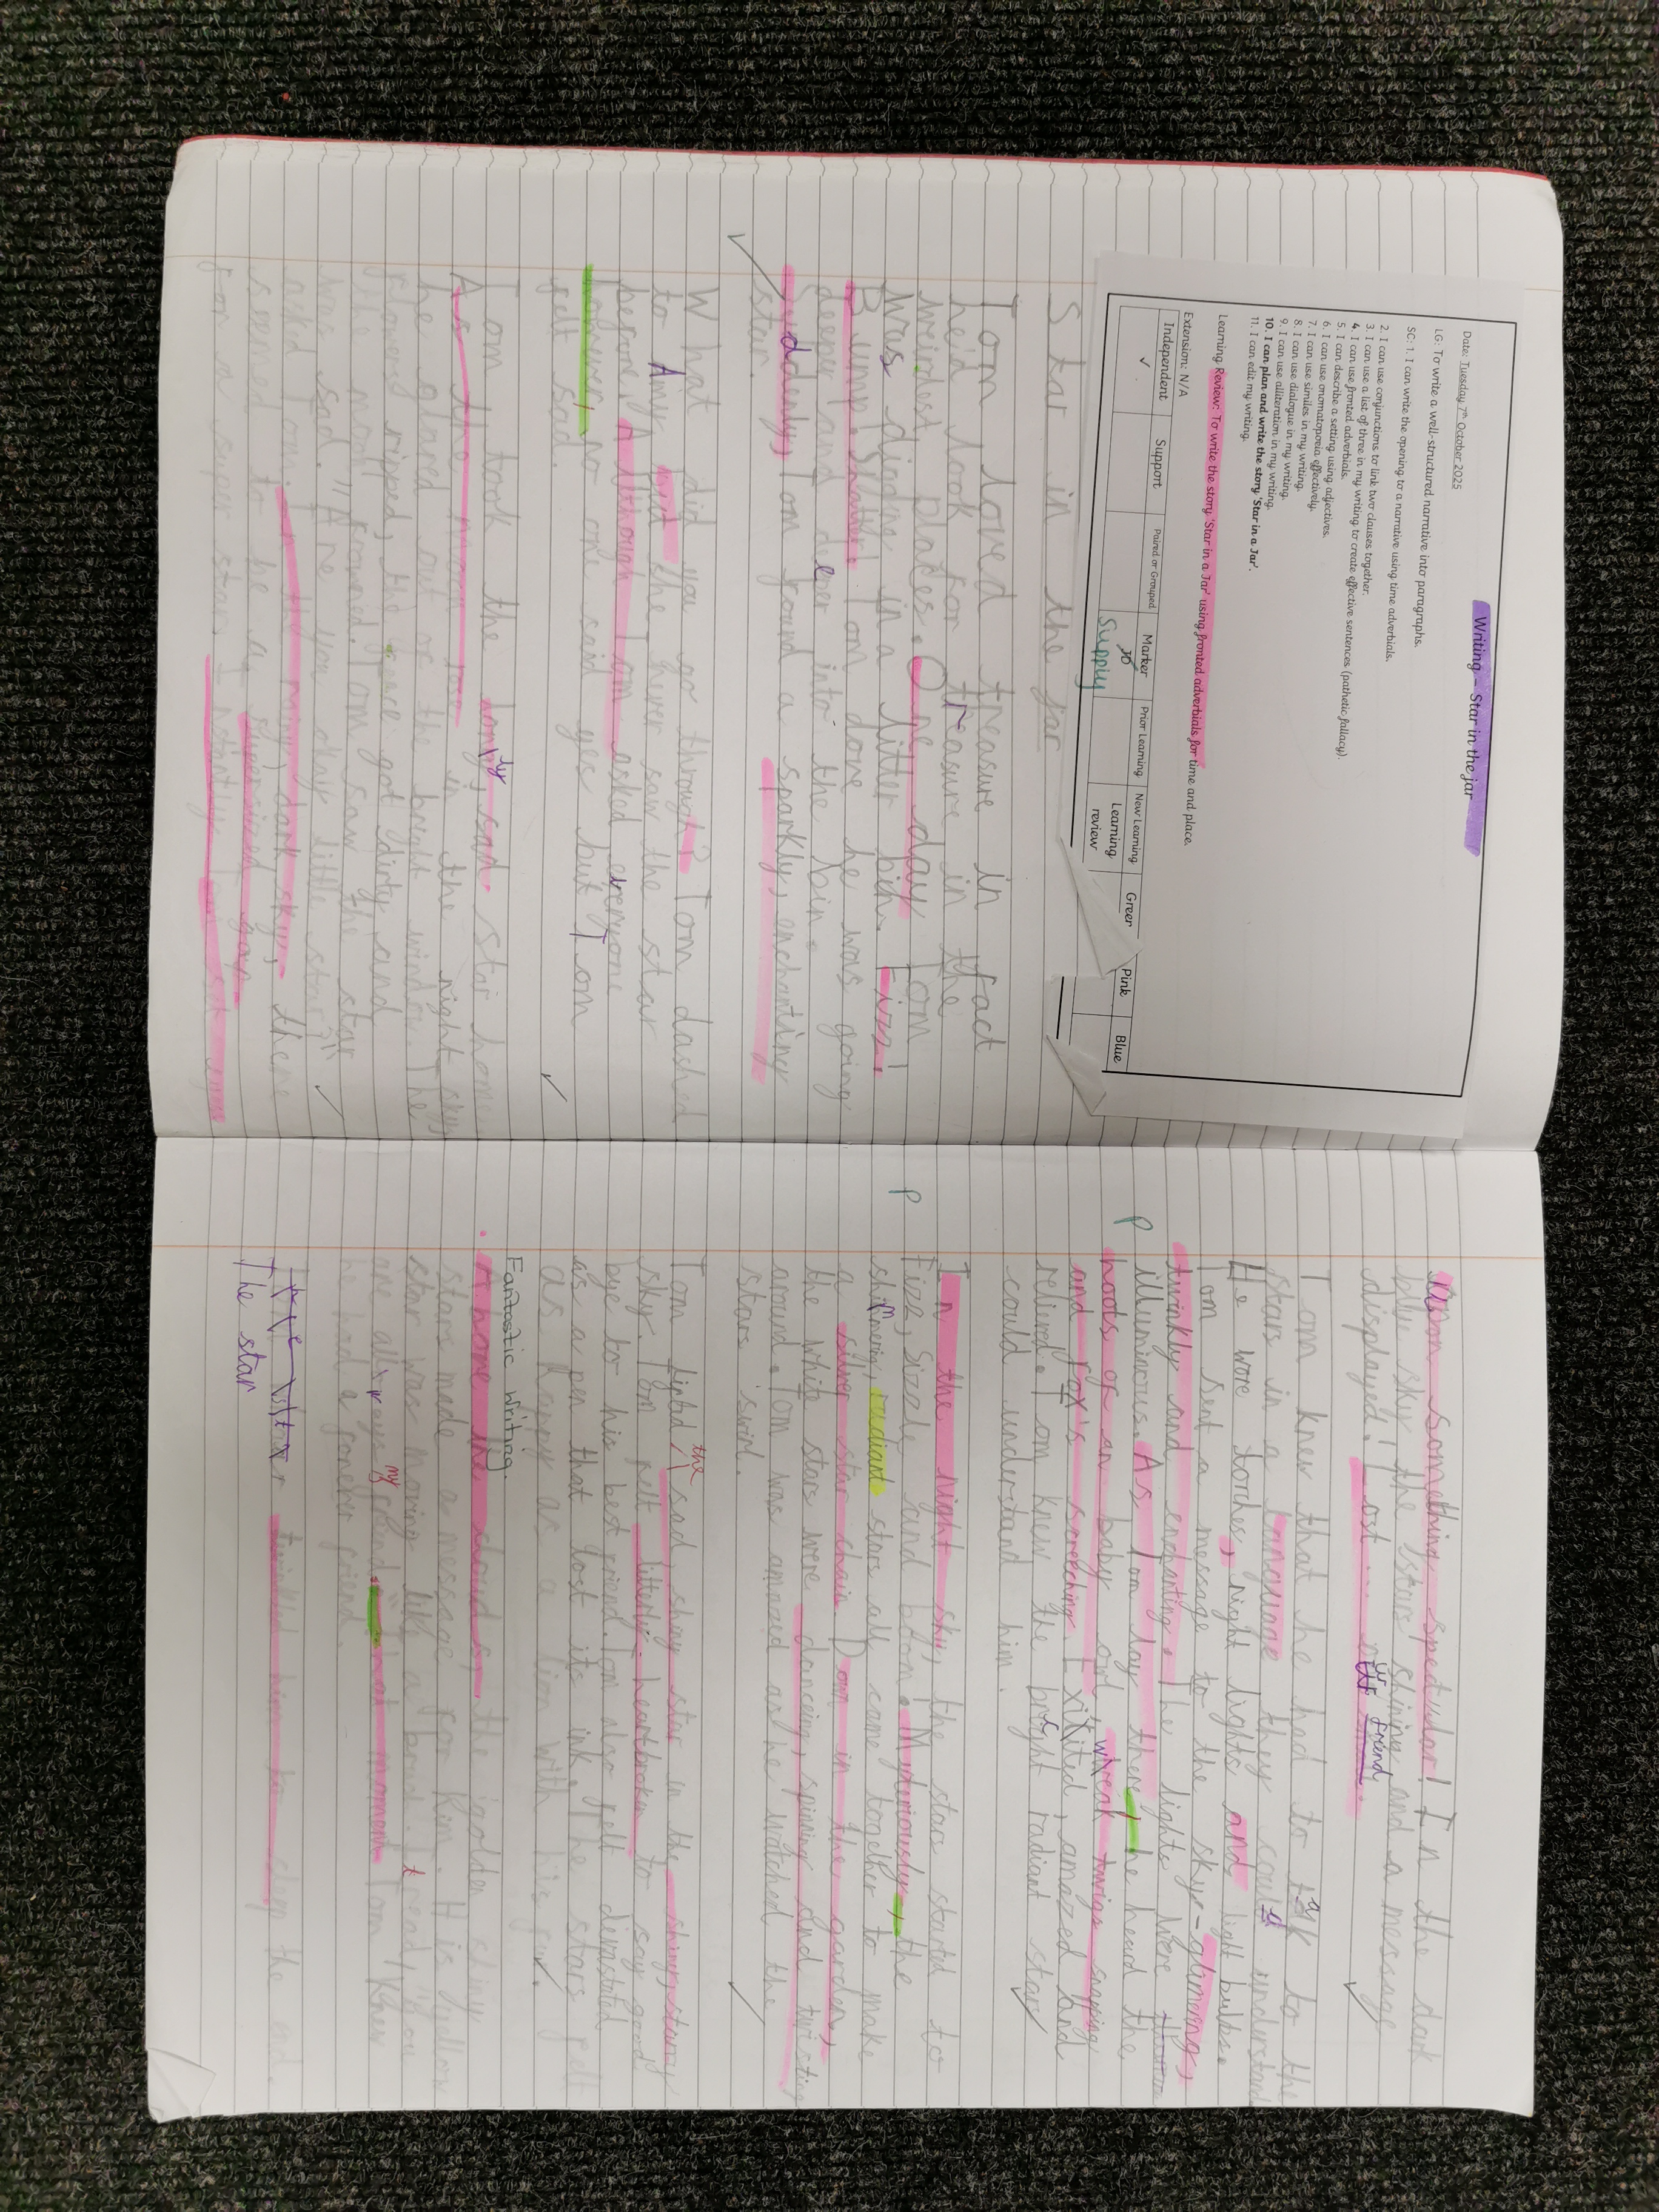 Writing - Star in the jar
Date: Tuesday 7th October 2025
LG: To write a well-structured narrative into paragraphs.
SC: 1. I can write the opening to a narrative using time adverbials.
2. I can use conjunctions to link two clauses together.
3. I can use a list of three in my writing.
4. I can use fronted adverbials.
5. I can describe a setting using adjectives.
6. I can use onomatopoeia effectively.
7. I can use similes in my writing.
8. I can use dialogue in my writing.
9. I can use alliteration in my writing.
10. I can plan and write the story 'Star in a Jar'.
11. I can edit my writing.
Learning Review: To write the story 'Star in a Jar' using fronted adverbials for time and place.
Extension: N/A
Independent Support Paired or Grouped Marker Prior Learning New Learning Green Pink Blue
✓ Supply Learning review
Star in the jar
Tom loved treasure in fact
he'd look for treasure in the
weirdest places. One day Tom
was diging in a litter bin. Fizz!
Bump. Tom dove he was going
deeper and deeper into the bin.
Suddenly, Tom found a sparkly, enchanting
star.
What did you go through? Tom dashed
to Amy but she never saw the star
before. Although Tom asked everyone
However, no one said yes but Tom
felt sad.
Tom took the lonely, sad star home
As the moon rose in the night sky
he glared out of the bright window. The
flowers ripped, the got dirty and
the moon frowned. Tom saw the star
was sad. "Are you okay little star?"
asked Tom. In the rainy, dark sky, there
seemed to be a supersized gap
for a super star. Instantly, Tom saw
Moon something spectacular! In the dark
blue sky, the stars shining and a message
displayed. Lost.... our friend.
Tom knew that he had to talk to the
stars in a language they could understand
He wore torches, night lights and light bulbs.
Tom sent a message to the sky - glimering,
twinkly and enchanting. The lights were
illuminous. As Tom lay there, he heard the
hoots of an baby owl, weak twigs snapping
and fox's screeching. Exitited, amazed and
relived. Tom knew the bright radiant stars
could understand him.
In the night sky, the stars started to
Fizz, Sizzle and boom. Mysteriously, the
shimmering, radiant stars all came together to
a silver star chain. Down in the garden,
the white stars were dancing, spining and twisting
around. Tom was amazed as he watched the
stars swirl.
Tom lifted the sad, shiny star in the shiny, starry
sky. Tom felt litterly heartbroken to say good
bye to his best friend. Tom also felt devastated
as a pen that lost its ink. The stars felt
as happy as a lion with his
Fantastic writing.
Above the cloud as, the golden shiny
stars made a message for him. His yellow
star was moving like a bone. I read, "You
are always my friend" Tom knew
he had a forever friend.
twinkled him to sleep the end.
The star